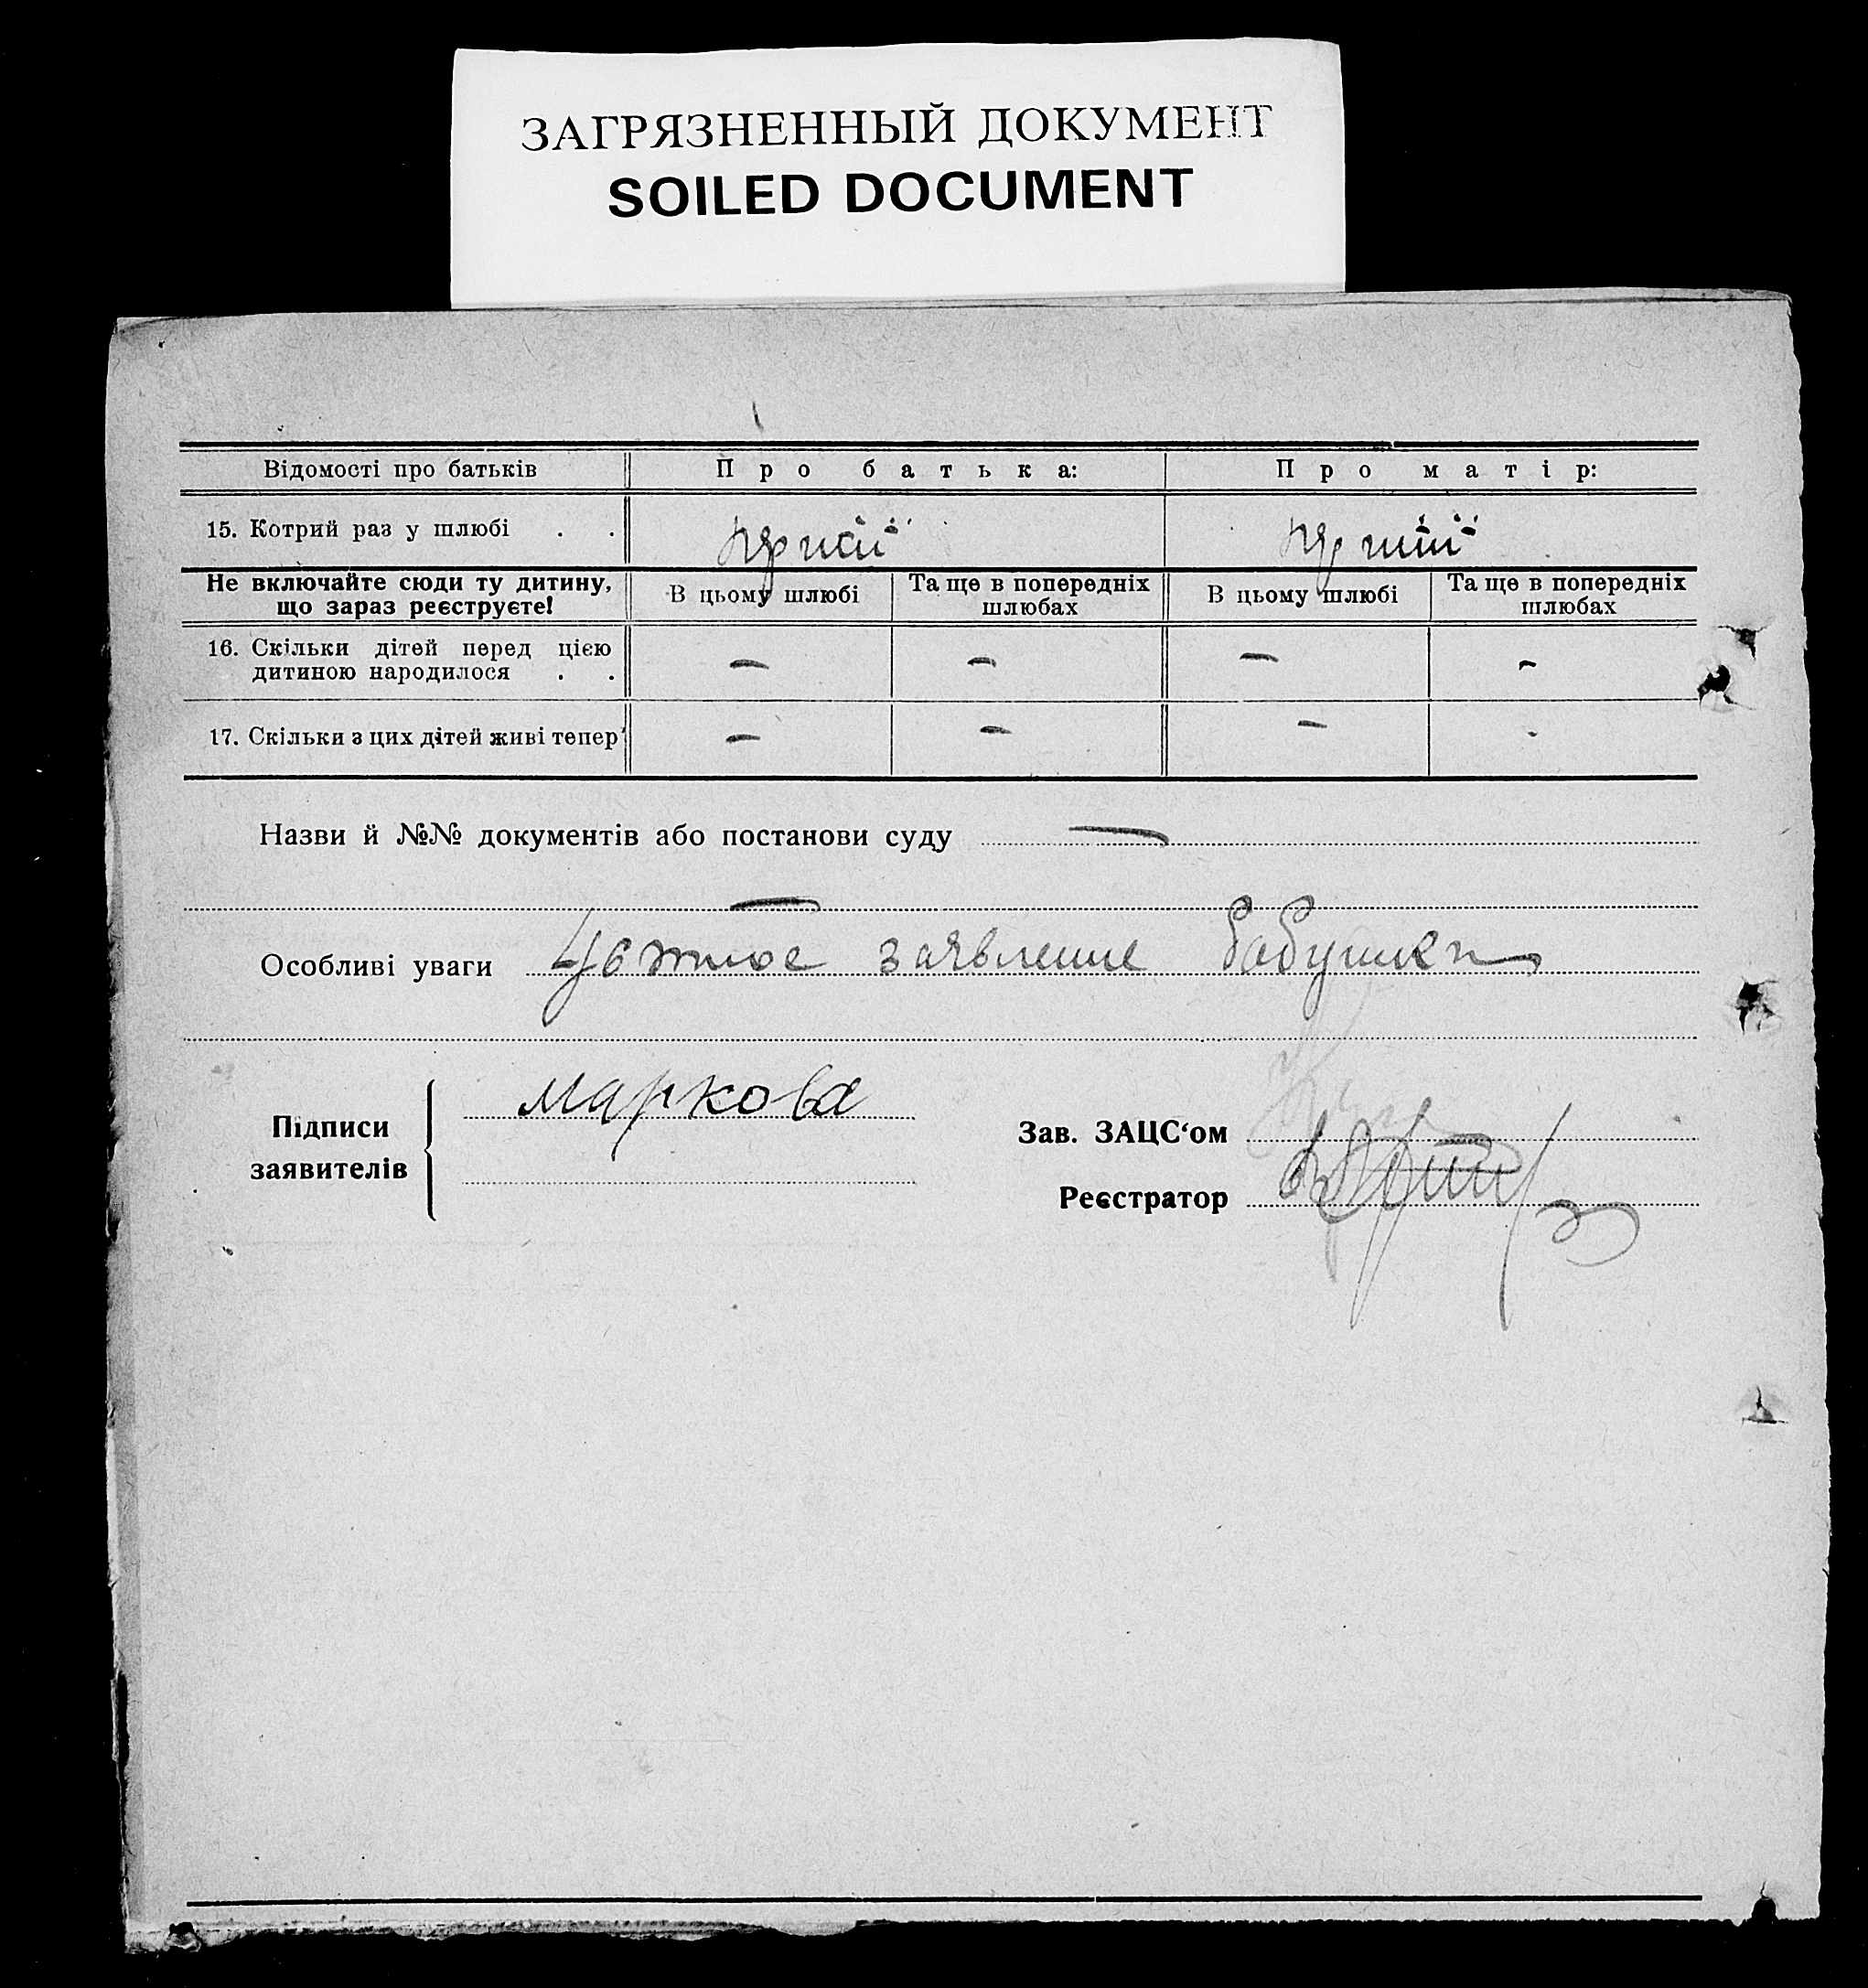 ЗАГРЯЗНЕННЫЙ ДОКУМЕНТ
SOILED DOCUMENT
Відомості про батьків Про батька: Про матір:
15. Котрий раз у шлюбі . .
Не включайте сюди ту дитину, що зараз реєструєте! В цьому шлюбі Та ще в попередніх шлюбах В цьому шлюбі Та ще в попередніх шлюбах
16. Скільки дітей перед цією дитиною народилося . . — — — —
17. Скільки з цих дітей живі тепер — — — -
Назви й №№ документів або постанови суду —
—
Особливі уваги Устное заявление бабушки
Підписи заявителів Маркова
Зав. ЗАЦС‘ом
Реєстратор